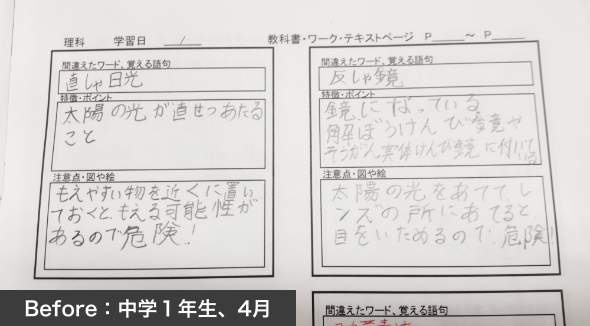 理科 学習日 ／ 教科書・ワーク・テキストページ P ～ P
間違えたワード、覚える語句
直しゃ日光
特徴・ポイント
太陽の光が直せつあたる
こと
注意点・図や絵
もえやすい物を近くに置い
ておくと、もえる可能性が
あるので危険!
間違えたワード、覚える語句
反しゃ鏡
特徴・ポイント
鏡になっている
解ぼうけんび鏡や
そうがん実体けんび鏡に付いて
いる
注意点・図や絵
太陽の光をあてて、レ
ンズの所にあてると、
目をいためるので、危険!
間違えたワード、覚える語句
Before：中学１年生、4月